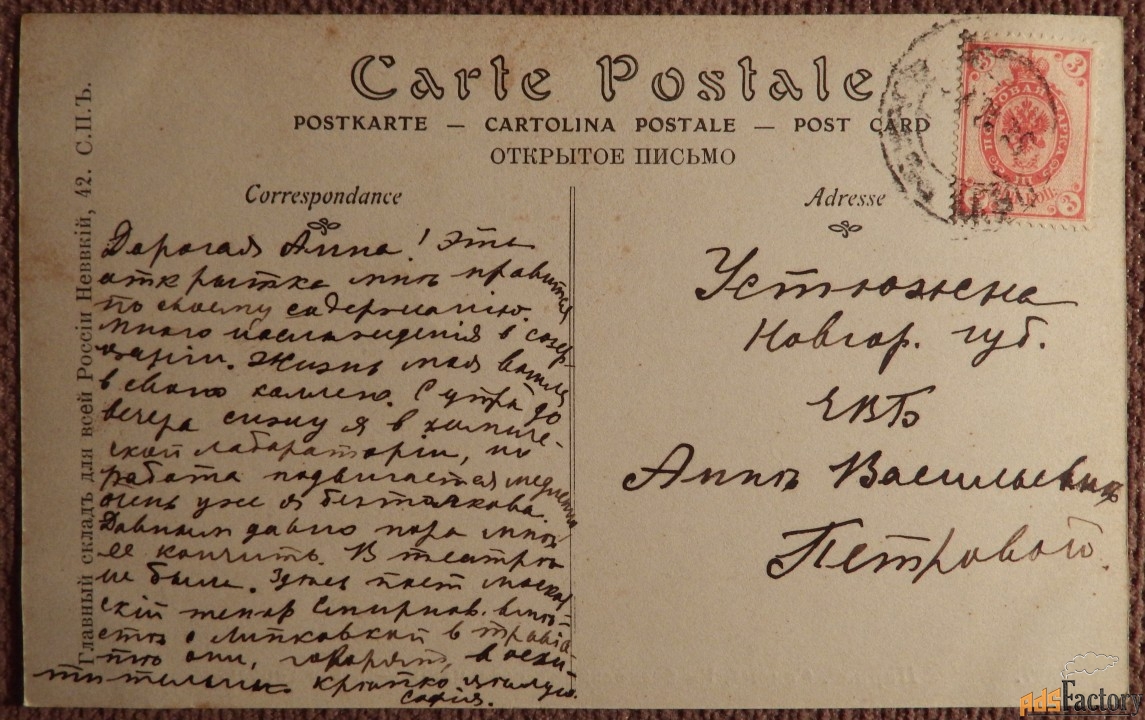 Carte Postale
POSTKARTE — CARTOLINA POSTALE — POST CARD
ОТКРЫТОЕ ПИСЬМО
Correspondance
Adresse
Главный складъ для всей Россіи Неввкій, 42. С.П.Ъ.
Дорогая Анна! Эта
открытка мнѣ нравится
по своему содержанію.
Много наслажденія в созер-
цаніи. Жизнь моя вошла
в свою колею. С утра до
вечера сижу я в химиче-
ской лабораторіи, но
работа подвигается медленно
очень уже я безтолкова.
Давным давно пора мнѣ
ее кончить. В театрѣ
не была. Здѣсь поет москов-
скій тенор Смирнов. вмѣ-
стѣ с Липковской в травіа-
тѣ они, говорят, восхи-
тительны. Крѣпко цѣлую.
Софія.
Устюжна
Новгор. губ.
ЕВБ
Аннѣ Васильевнѣ
Петровой.
3
3
ПОЧТОВАЯ МАРКА
3
AdsFactory